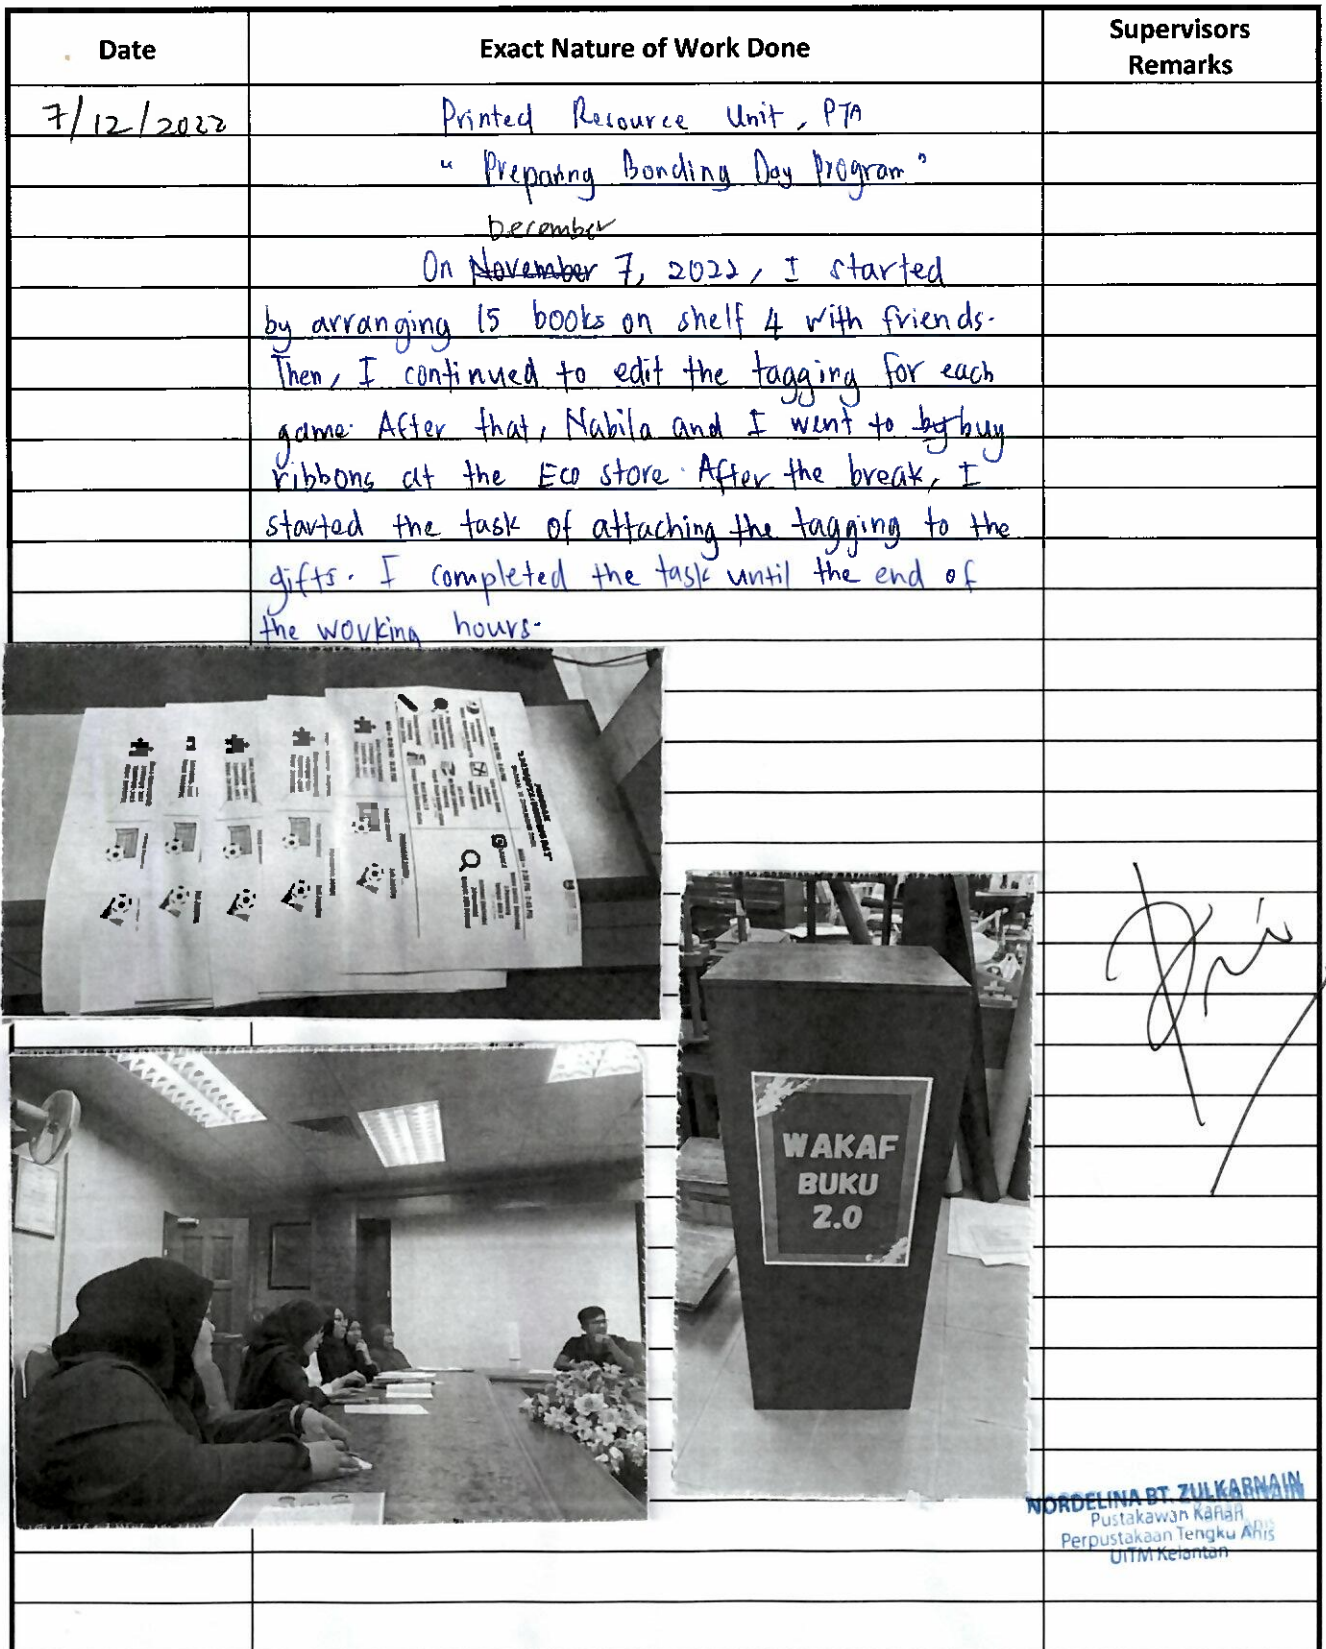 Date
Exact Nature of Work Done
Supervisors
Remarks
7/12/2022
Printed Resource Unit, PTA
" Preparing Bonding Day Program "
December
On November 7, 2022, I started
by arranging 15 books on shelf 4 with friends.
Then, I continued to edit the tagging for each
game. After that, Nabila and I went to by buy
ribbons at the Eco store. After the break, I
started the task of attaching the tagging to the
gifts. I completed the task until the end of
the working hours.
WAKAF
BUKU
2.0
NORDELINA BT. ZULKARNAIN
Pustakawan Kanan
Perpustakaan Tengku Anis
UiTM Kelantan